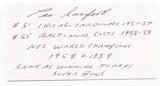 Leo Sanford
# 51 CHICAGO CARDINALS 1951-57
# 55 BALTIMORE COLTS 1958-59
NFL WORLD CHAMPIONS
1958 & 1959
SAME AS WINNING TODAYS
SUPER BOWL